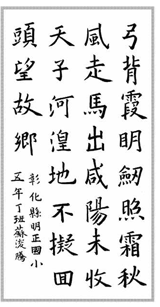 弓背霞明劒照霜秋
風走馬出咸陽未收
天子河湟地不擬回
頭望故鄉
彰化縣明正國小
五年丁班蘇淩鵬